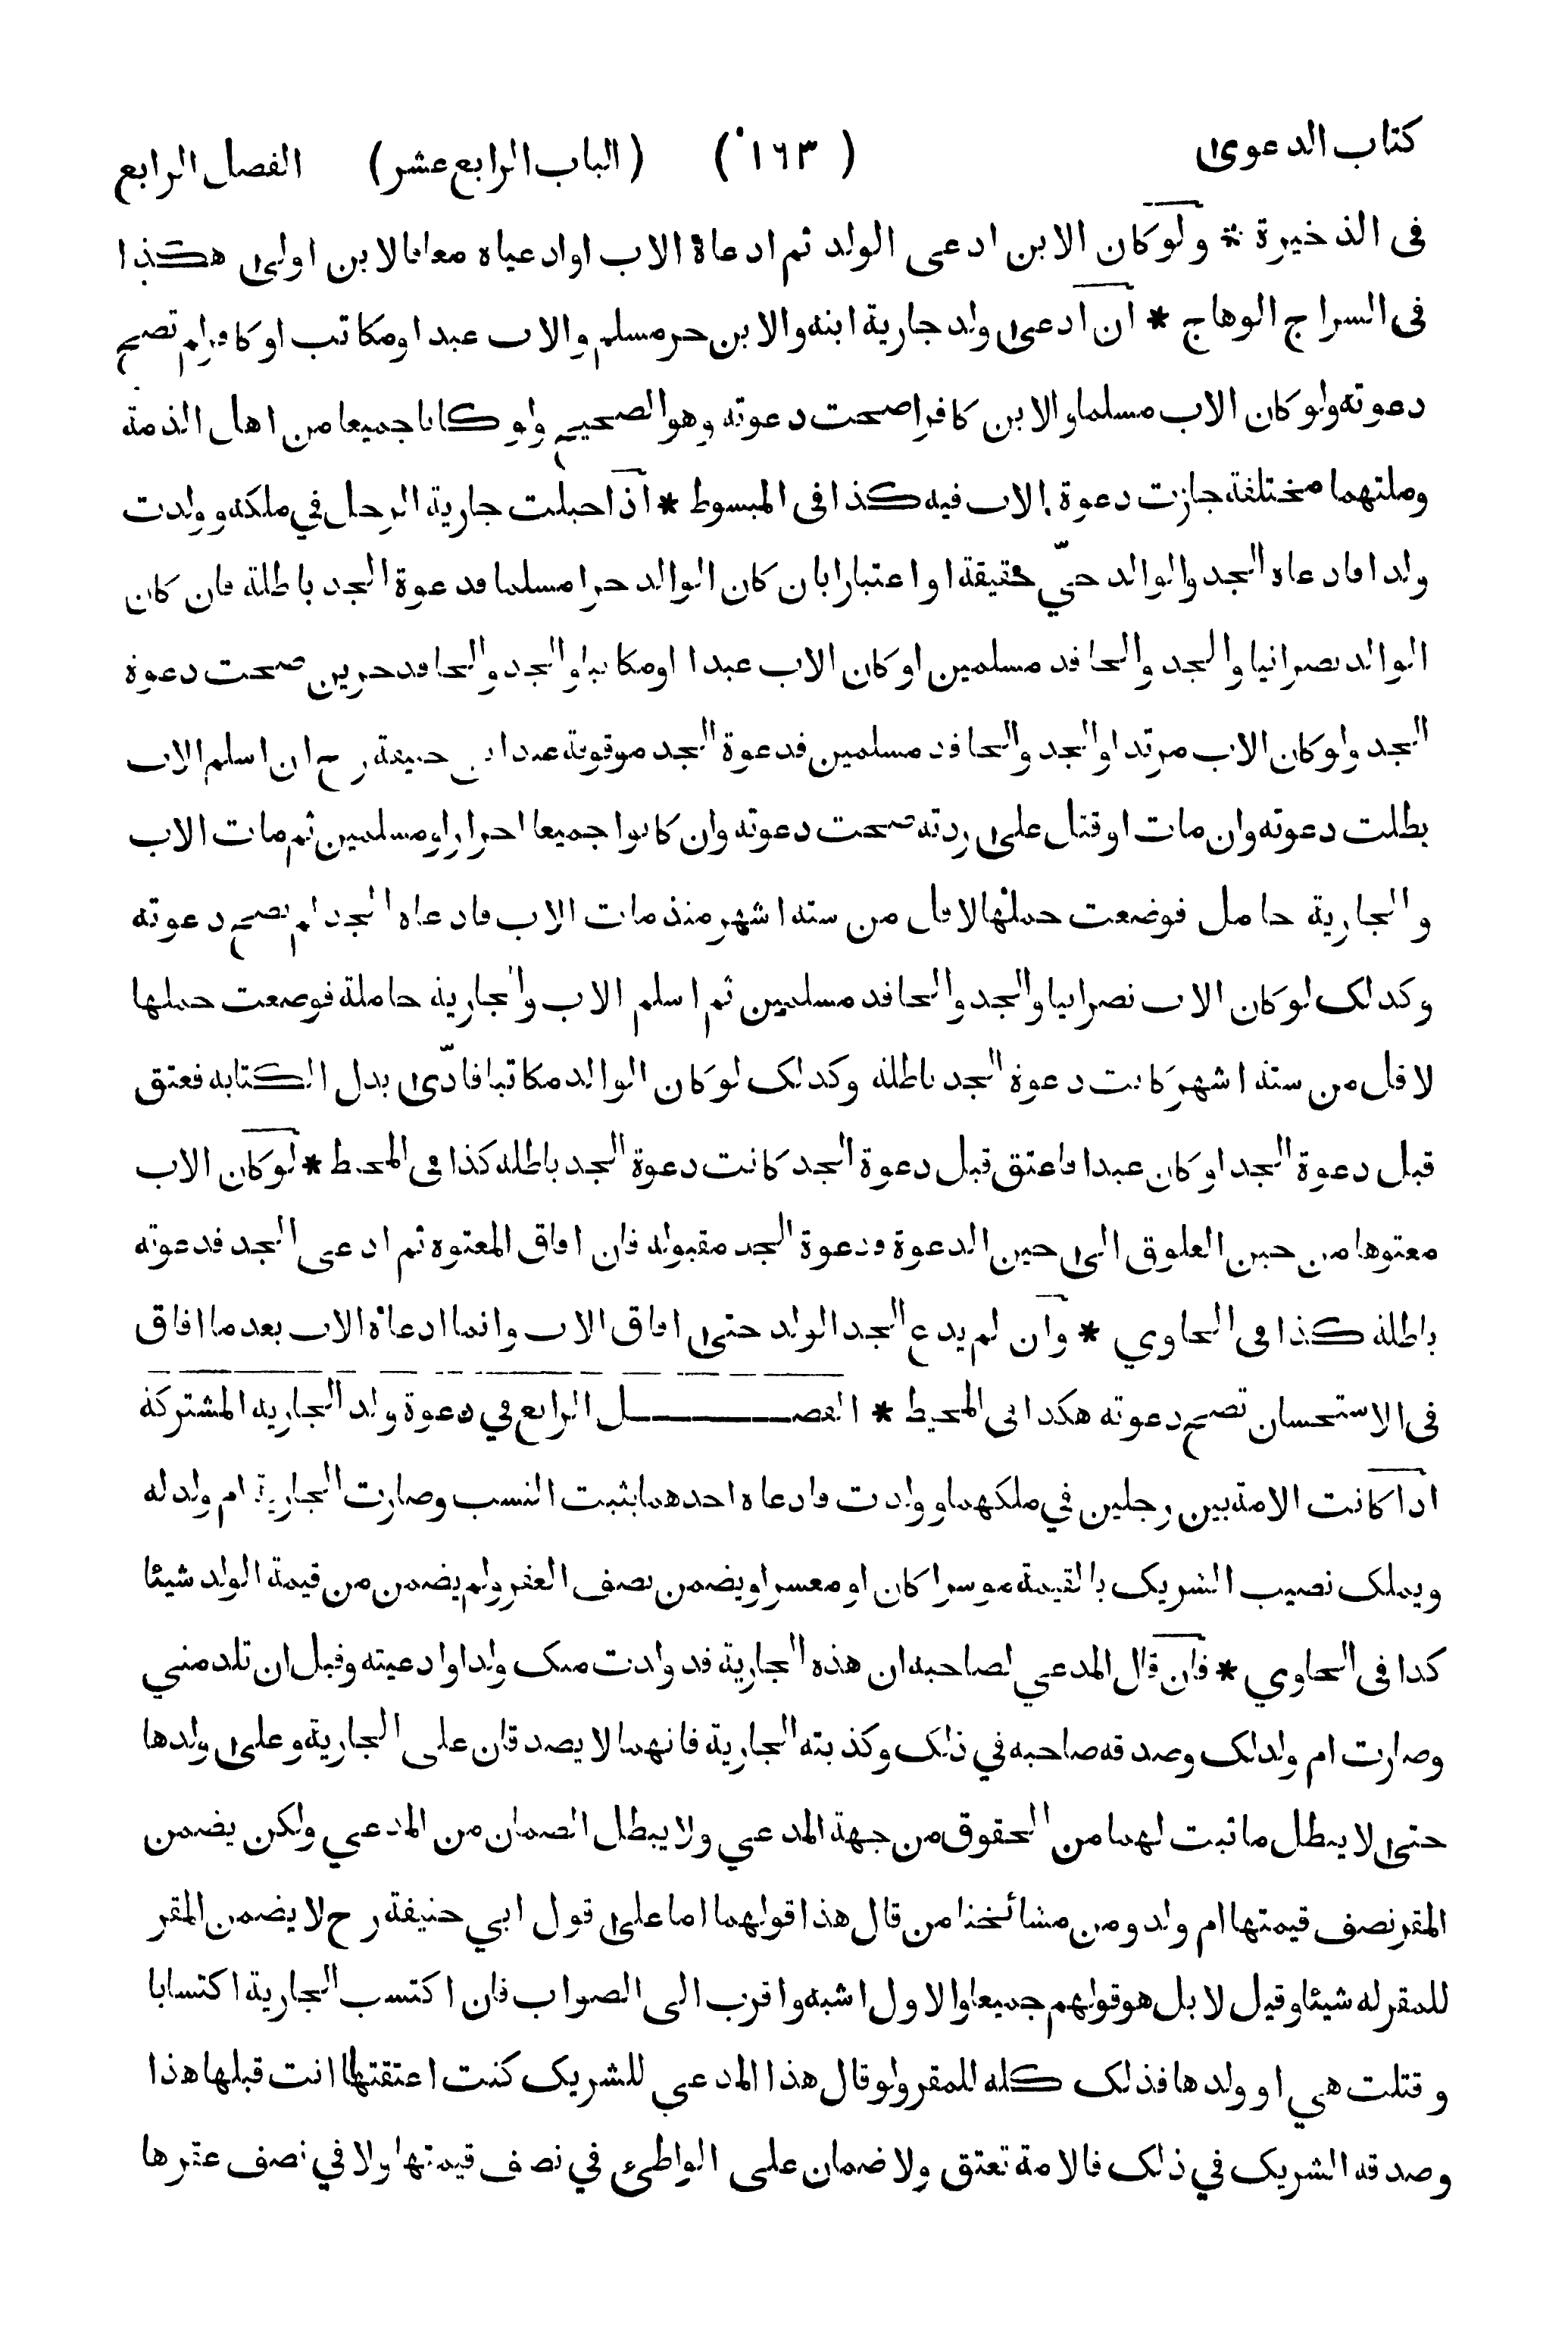 كتاب الدعوى (١٦٣) (الباب الرابع عشر) الفصل الرابع
فى الذخيرة * ولو كان الابن ادعى الولد ثم ادعاه الاب او ادعياه معا فالابن اولى هكذا
فى السراج الوهاج * ان ادعى ولد جارية ابنه والابن حر مسلم والاب عبد او مكاتب او كافر لم تصح
دعوته ولو كان الاب مسلما والابن كافرا صحت دعوته وهو الصحيح ولو كانا جميعا من اهل الذمة
وملتهما مختلفة جازت دعوة الاب فيه كذا فى المبسوط * اذا حبلت جارية الرجل في ملكه وولدت
ولدا فادعاه الجد والوالد حيّ حقيقة او اعتبارا بان كان الوالد حرا مسلما فدعوة الجد باطلة فان كان
الوالد نصرانيا والجد والحافد مسلمين او كان الاب عبدا او مكاتبا والجد والحافد حرين صحت دعوة
الجد ولو كان الاب مرتدا والجد والحافد مسلمين فدعوة الجد موقوفة عند ابي حنيفة رح ان اسلم الاب
بطلت دعوته وان مات او قتل على ردته صحت دعوته وان كانوا جميعا احرارا ومسلمين ثم مات الاب
والجارية حامل فوضعت حملها لاقل من ستة اشهر منذ مات الاب فادعاه الجد لم تصح دعوته
وكذلك لو كان الاب نصرانيا والجد والحافد مسلمين ثم اسلم الاب والجارية حاملة فوضعت حملها
لاقل من ستة اشهر كانت دعوة الجد باطلة وكذلك لو كان الوالد مكاتبا فادّى بدل الكتابة فعتق
قبل دعوة الجد او كان عبدا فاعتق قبل دعوة الجد كانت دعوة الجد باطلة كذا في المحيط * لو كان الاب
معتوها من حين العلوق الى حين الدعوة فدعوة الجد مقبولة فان افاق المعتوه ثم ادعى الجد فدعوته
باطلة كذا فى الحاوي * وان لم يدع الجد الولد حتى افاق الاب وانما ادعاه الاب بعد ما افاق
فى الاستحسان تصح دعوته هكذا فى المحيط * الفصل الرابع في دعوة ولد الجارية المشتركة
اذا كانت الامة بين رجلين في ملكهما وولدت فادعاه احدهما يثبت النسب وصارت الجارية ام ولد له
ويملك نصيب الشريك بالقيمة موسرا كان او معسرا ويضمن نصف العقر ولم يضمن من قيمة الولد شيئا
كذا فى الحاوي * فان قال المدعي لصاحبه ان هذه الجارية قد ولدت منك ولدا وادعيته وقبل ان تلد مني
وصارت ام ولد لك وصدقه صاحبه في ذلك وكذبته الجارية فانهما لا يصدقان على الجارية وعلى ولدها
حتى لا يبطل ما ثبت لهما من الحقوق من جهة المدعي ولا يبطل الضمان من المدعي ولكن يضمن
المقر نصف قيمتها ام ولد ومن مشائخنا من قال هذا قولهما اما على قول ابي حنيفة رح لا يضمن المقر
للمقر له شيئا وقيل لا بل هو قولهم جميعا والاول اشبه واقرب الى الصواب فان اكتسب الجارية اكتسابا
وقتلت هي او ولدها فذلك كله للمقر ولو قال هذا المدعي للشريك كنت اعتقتها انت قبلها هذا
وصدقه الشريك في ذلك فالامة تعتق ولا ضمان على الواطىء في نصف قيمتها ولا في نصف عقرها